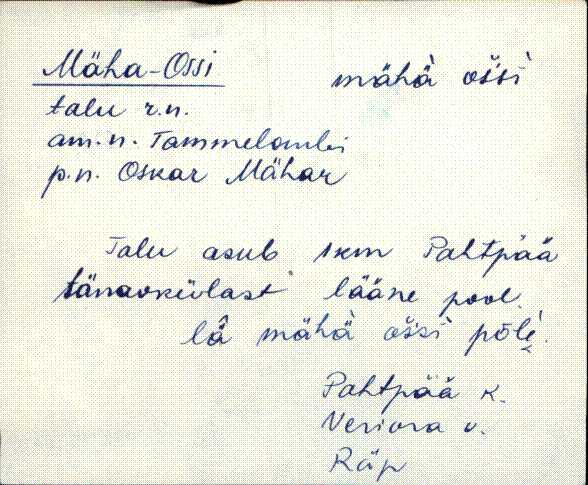 Mäha-Ossi mähà ošsì
talu r.n.
am.n. Tammelombi
p.n. Oskar Mähar
Talu asub 1 km Pahtpää
tänavkülast lääne pool.
lǟ mähà ošsì põlè.
Pahtpää k.
Veriora v.
Räp